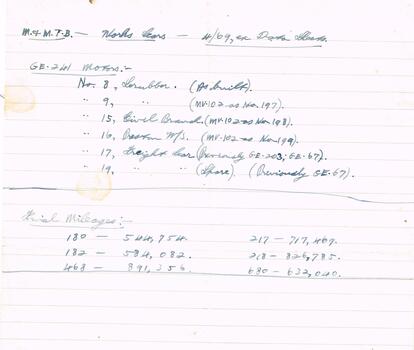 M. & M.T.B. — Works Cars — 4/69, ex Data Sheets.
GE-241 Motors:-
No. 8, Scrubber. (As built).
" 9, " (MV-102 as No. 197).
" 15, Civil Branch. (MV-102 as No. 198).
" 16, Preston W/S. (MV-102 as No. 199).
" 17, Freight Car (Previously GE-203; GE-67).
" 19, " " (Spare). (Previously GE-67).
Final Mileages:-
180 — 544,754. 217 — 717,469.
182 — 584,082. 218 — 826,785.
468 — 891,356. 680 — 632,040.